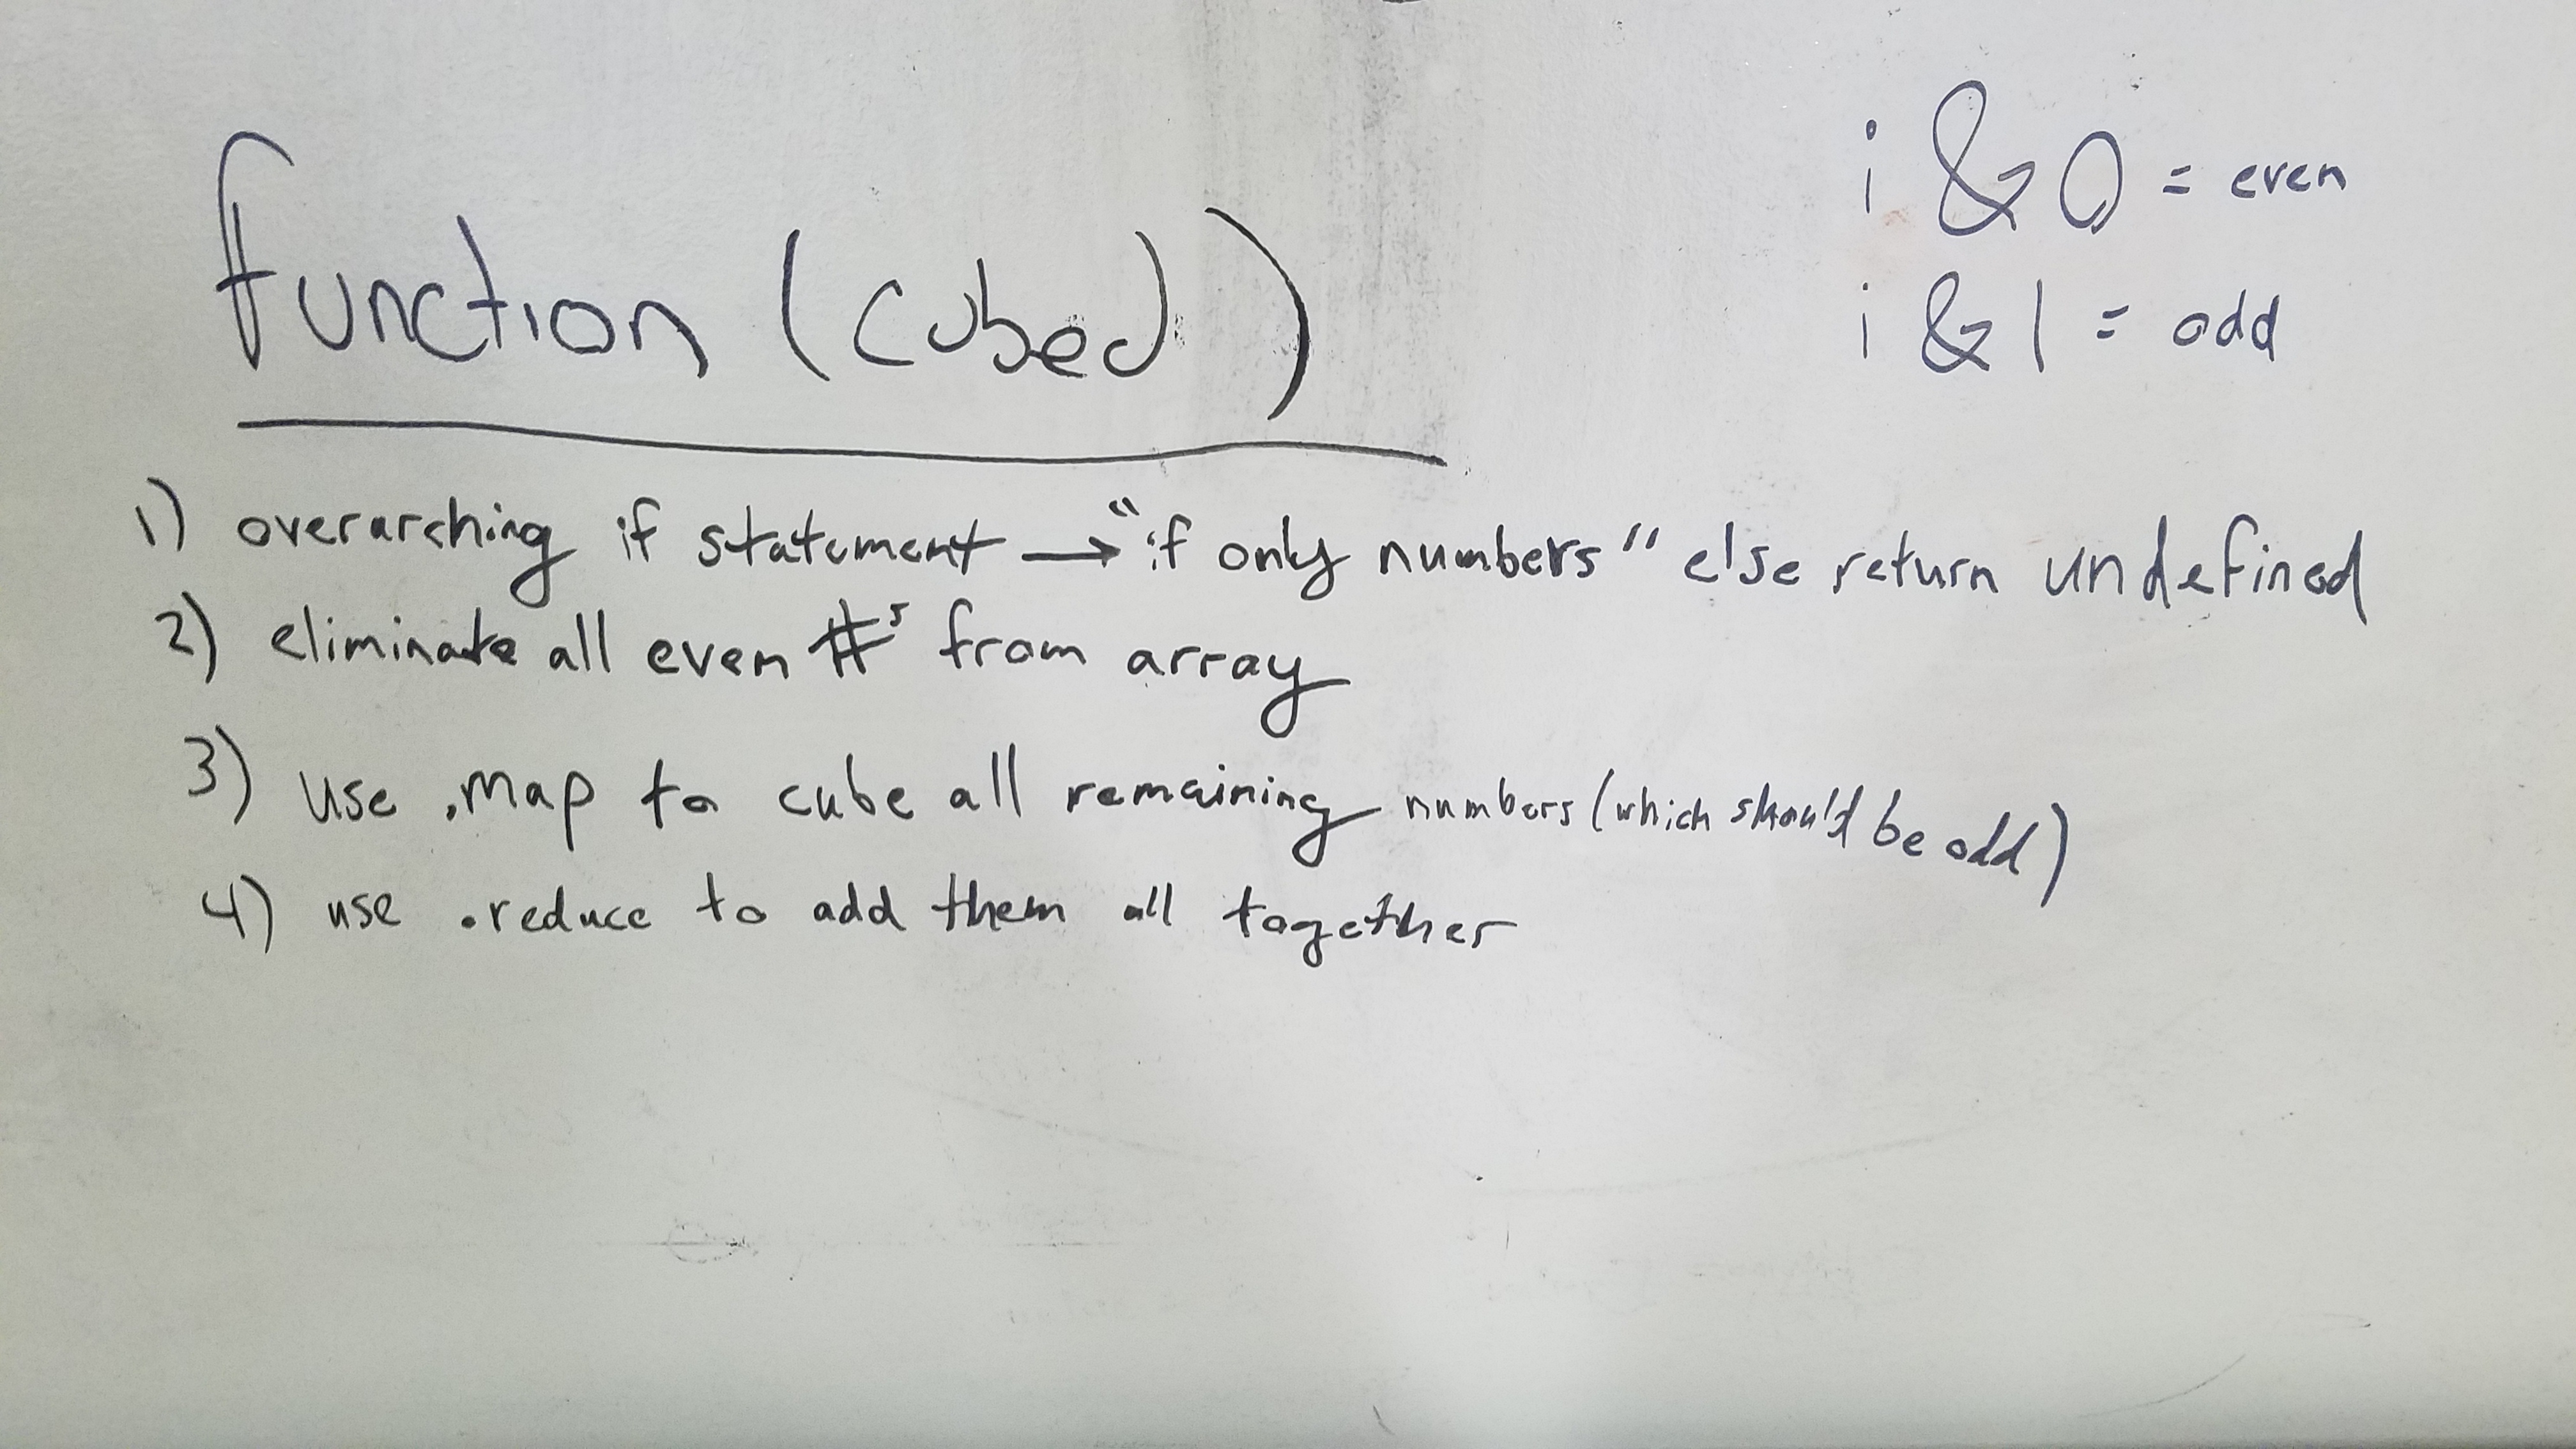 function (cubed)
i & 0 = even
i & 1 = odd
1) overarching if statement → "if only numbers" else return undefined
2) eliminate all even #s from array
3) use .map to cube all remaining numbers (which should be odd)
4) use .reduce to add them all together